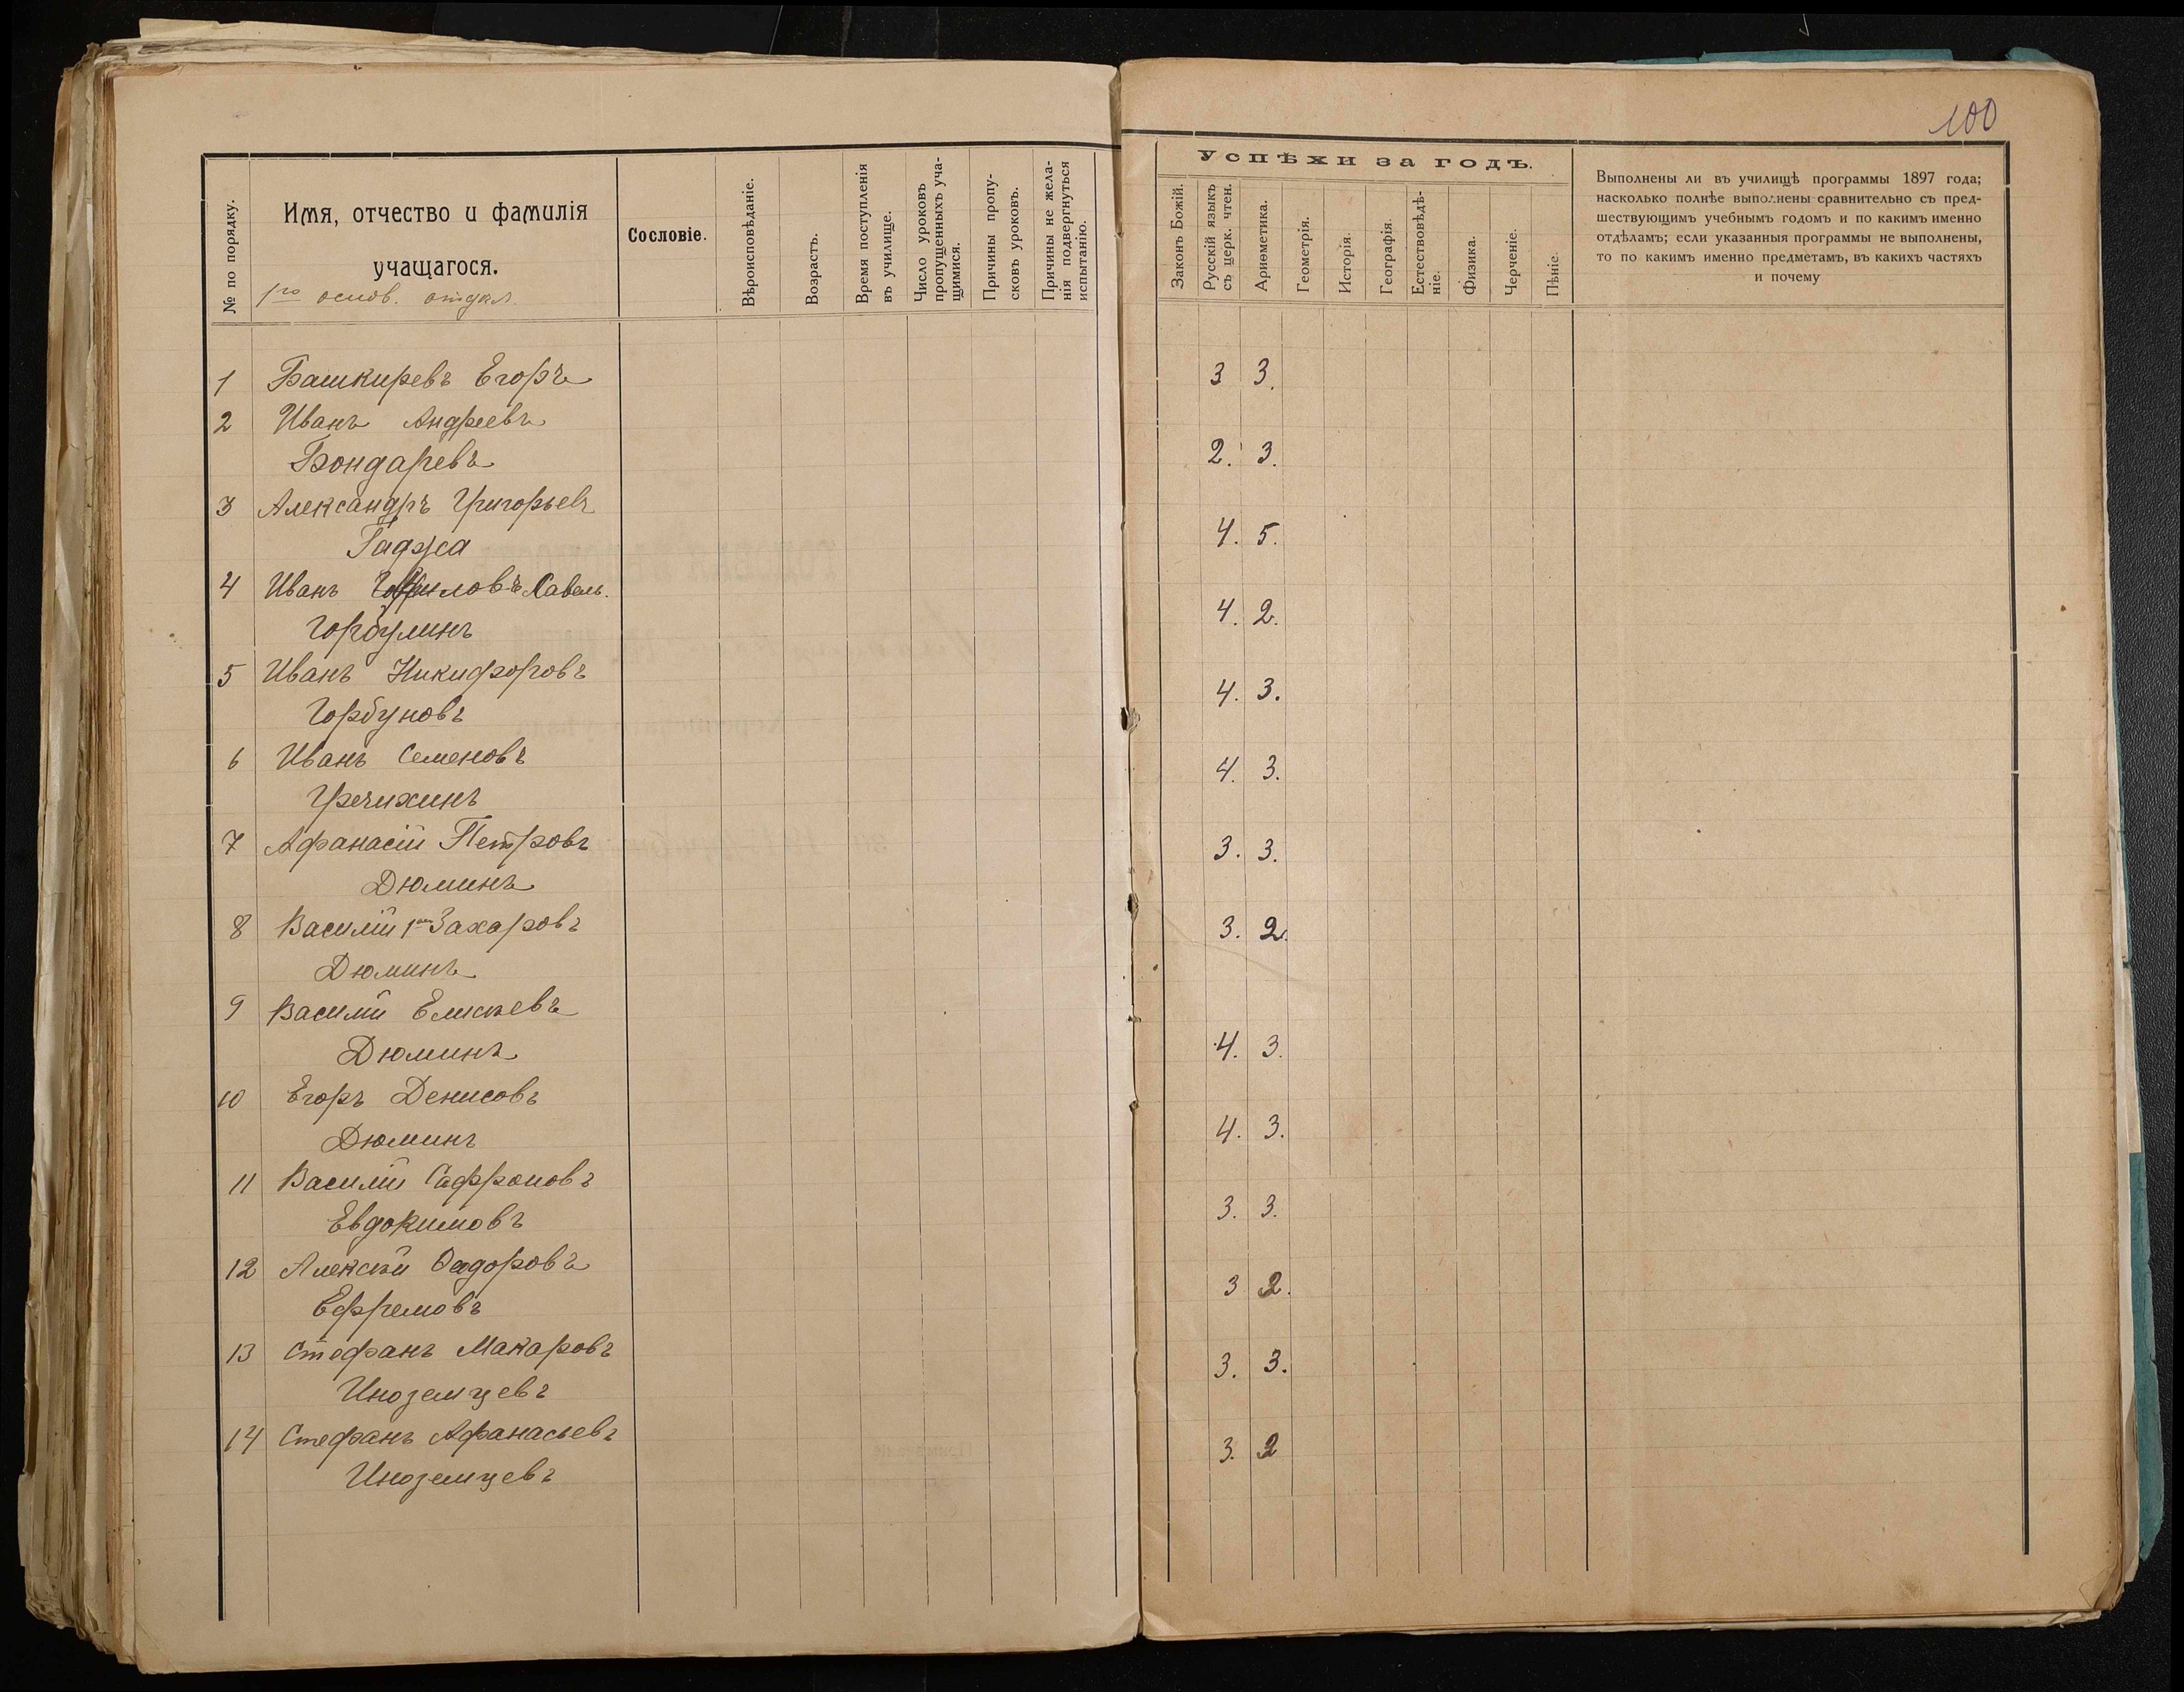 100
№ по порядку.
Имя, отчество и фамилія
учащагося.
1го основ. отдѣл.
Сословіе.
Вѣроисповѣданіе.
Возрастъ.
Время поступленія
въ училище.
Число уроковъ
пропущенныхъ уча-
щимися.
Причины пропу-
сковъ уроковъ.
Причины не жела-
нія подвергнуться
испытанію.
Успѣхи за годъ.
Законъ Божій.
Русскій языкъ
съ церк. чтен.
Ариѳметика.
Геометрія.
Исторія.
Географія.
Естествовѣдѣ-
ніе.
Физика.
Черченіе.
Пѣніе.
Выполнены ли въ училищѣ программы 1897 года;
насколько полнѣе выполнены сравнительно съ пред-
шествующимъ учебнымъ годомъ и по какимъ именно
отдѣламъ; если указанныя программы не выполнены,
то по какимъ именно предметамъ, въ какихъ частяхъ
и почему
1 Башкиревъ Егоръ 3 3.
2 Иванъ Андреевъ
Бондаревъ 2. 3.
3 Александръ Григорьевъ
Гаджа 4. 5.
4 Иванъ Савель.
Горбулинъ 4. 2.
5 Иванъ Никифоровъ
Горбуновъ 4. 3.
6 Иванъ Семеновъ
Гречихинъ 4. 3.
7 Афанасій Петровъ
Дюминъ 3. 3.
8 Василій 1ый Захаровъ
Дюминъ 3. 2.
9 Василій Елисѣевъ
Дюминъ 4. 3.
10 Егоръ Денисовъ
Дюминъ 4. 3.
11 Василій Сафроновъ
Евдокимовъ 3. 3.
12 Алексѣй Федоровъ
Ефремовъ 3 2.
13 Стефанъ Макаровъ
Иноземцевъ 3. 3.
14 Стефанъ Афанасьевъ
Иноземцевъ 3. 2